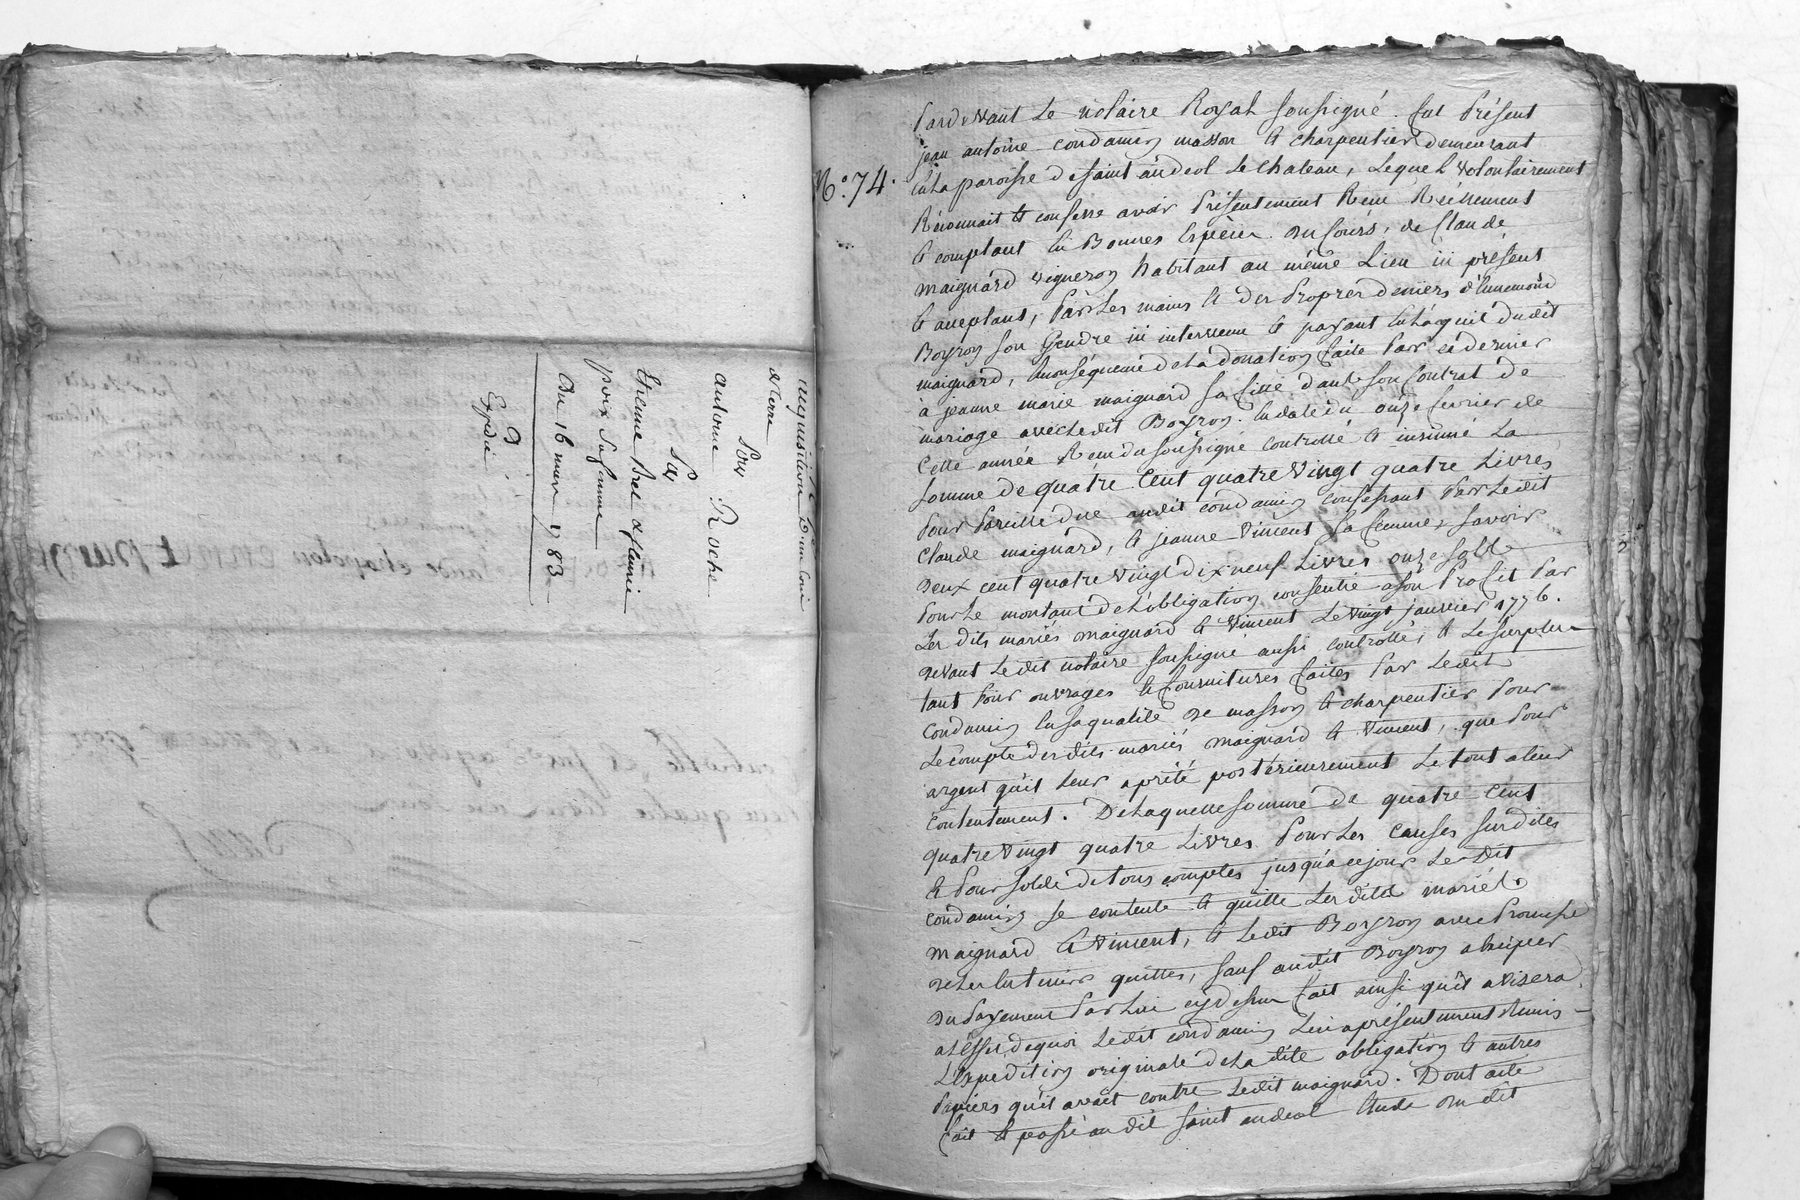 acquisition d'un coin
de terre
Pour
antoine Roche
Par
Etienne Brel & fleurie
poix sa femme
Du 16 mars 1783
Expedié
N.° 74.
Pardevant Le notaire Royal soussigné. fut Présent
jean antoine condamin masson & charpentier demeurant
en La paroisse de saint andeol Le chateau, Lequel volontairement
Reconnait & confesse avoir Présentement Reçu Réellement
& comptant en Bonnes Espèces du Cours, de Claude
maignard vigneron habitant au même Lieu ici présent
& acceptant, Par Les mains & des Propres deniers d'ennemond
Boyron son Gendre ici intervenu & payant en L'acquit dudit
maignard, Conséquence de La donation faite Par ce dernier
à jeanne marie maignard sa fille dans son Contrat de
mariage avec Ledit Boyron. en date du onze fevrier de
Cette année Reçu du soussigné controllé & insinué La
somme de quatre Cent quatre vingt quatre Livres
Pour Pareille due audit condamin confessant Par Ledit
Claude maignard, & jeanne vincent sa femme, savoir
Deux cent quatre vingt dix neuf Livres onze sols
Pour Le montant de L'obligation consentie a son Profit Par
Les dits mariés maignard & vincent Le vingt janvier 1776.
devant Ledit notaire soussigné aussi controllée, & Le surplus
tant Pour ouvrages & fournitures faites Par Ledit
Condamin en sa qualité de masson & charpentier Pour
Le compte des dits mariés maignard & vincent, que Pour
argent qu'il Leur a prêté postérieurement Le tout a leur
contentement. De Laquelle somme de quatre Cent
quatre vingt quatre Livres Pour Les causes susdites
& Pour solde de tous comptes jusqu'à ce jour Le dit
condamin se contente & quitte Les dits mariés
maignard & vincent, & Ledit Boyron avec Promesse
de Les en tenir quittes, sauf audit Boyron a
du Payement Par Lui cy dessus fait ainsi qu'il avisera,
a L'effet de quoi Ledit condamin Lui a présentement Remis
L'expedition originale de La dite obligation & autres
Papiers qu'il avait contre Ledit maignard. Dont acte
fait & passé au dit saint andeol Etude du dit